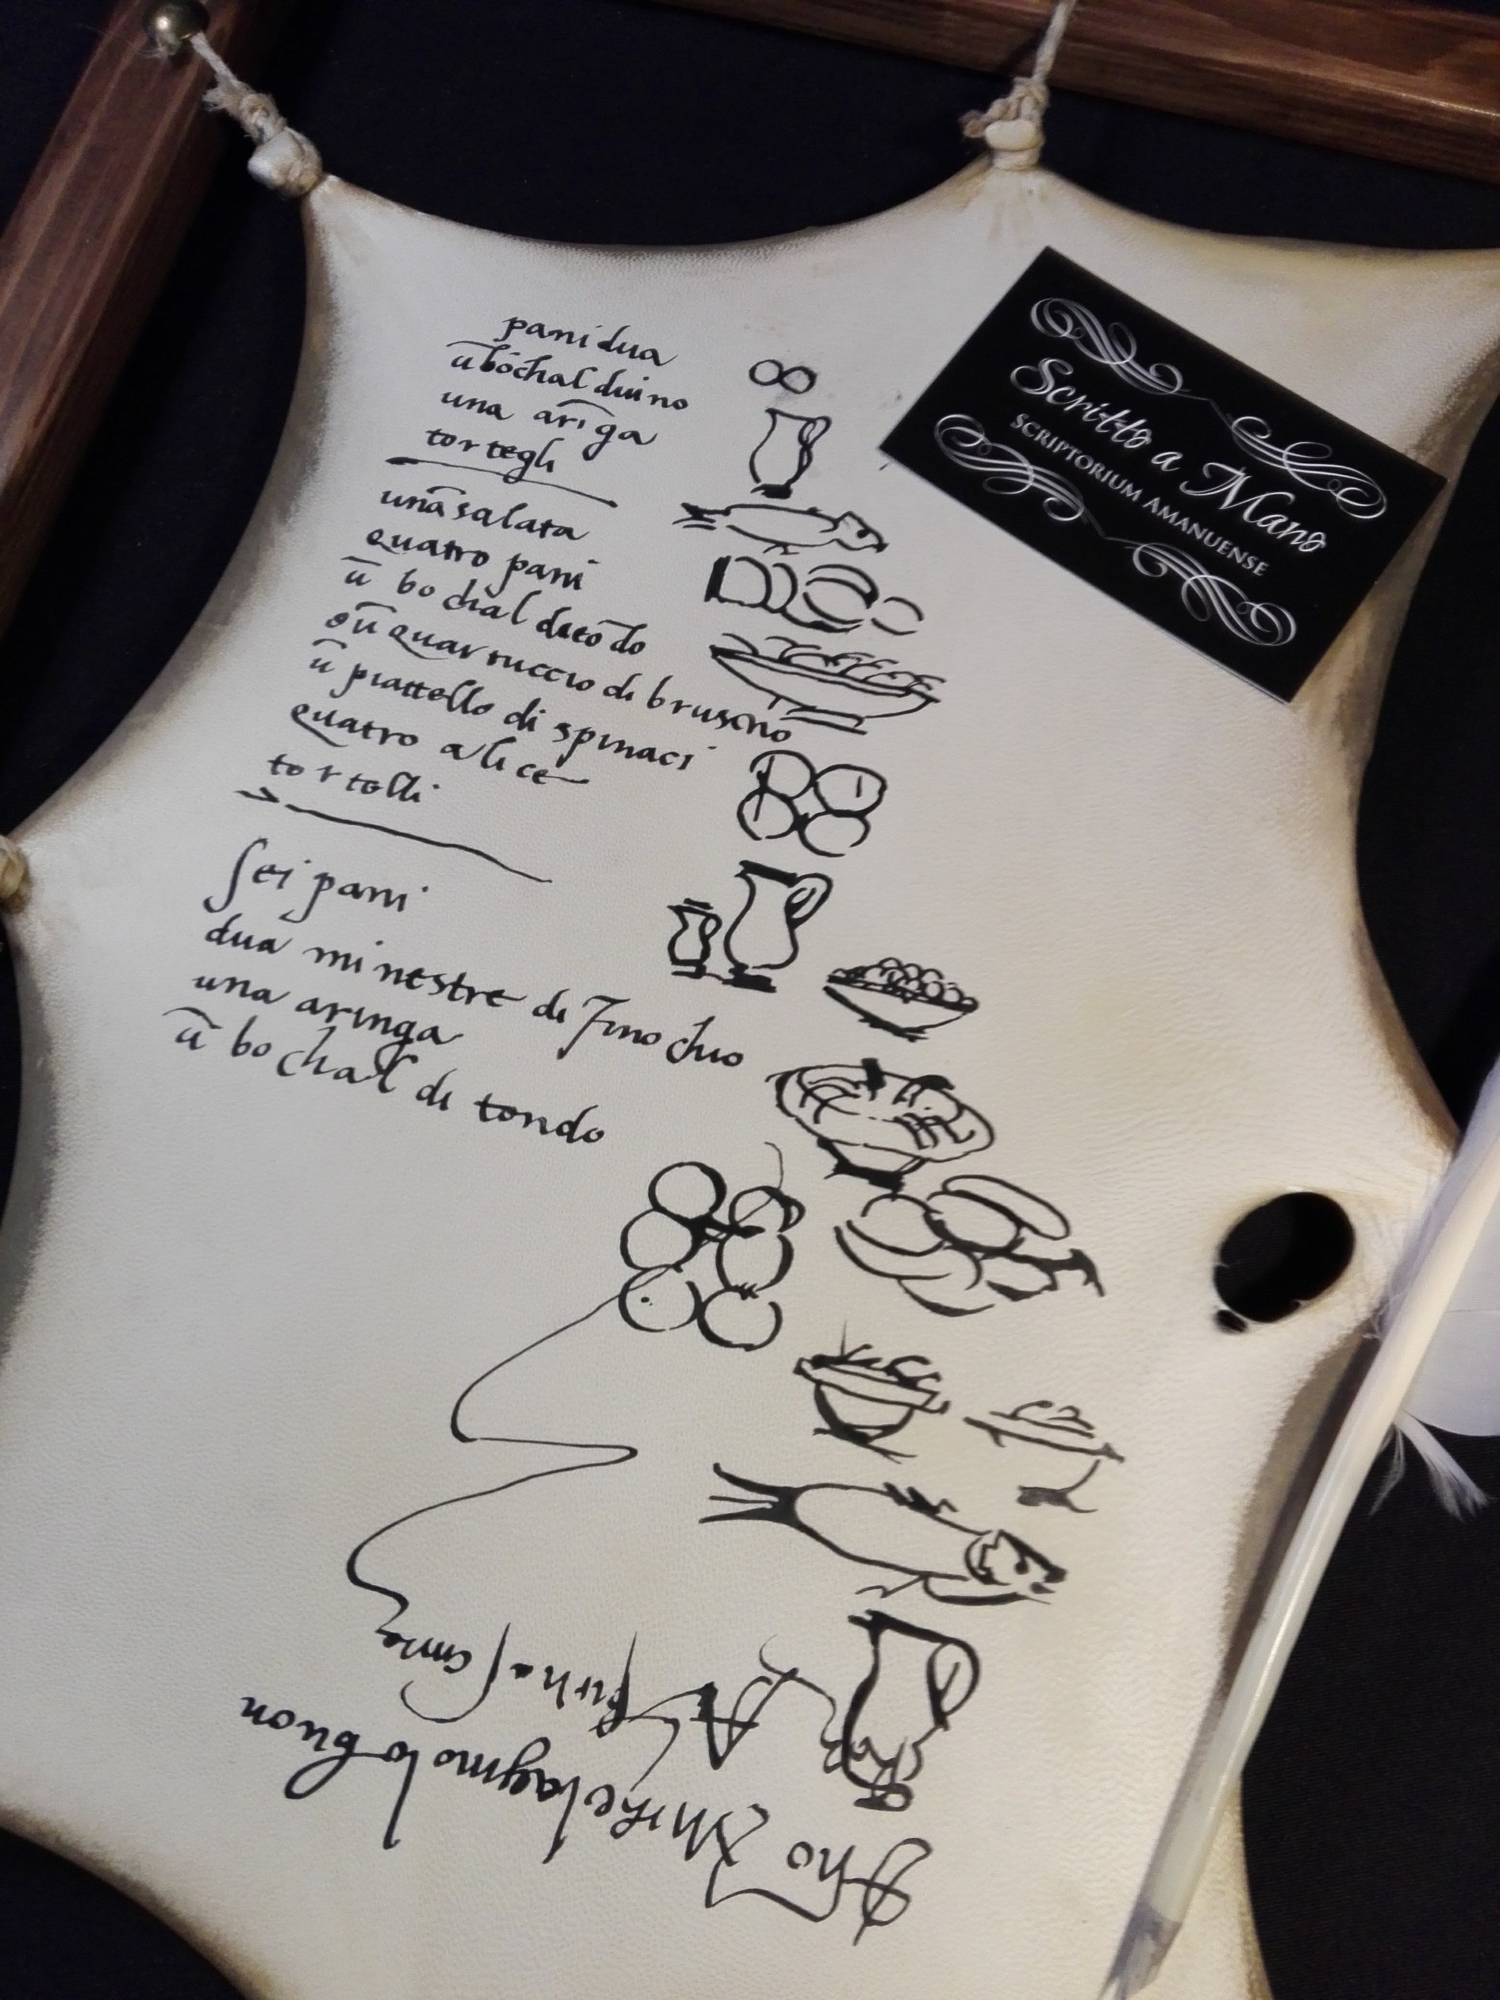 pani dua
ū bochal duino
una arīga
tortegli
una salata
quatro pani
ū bochal ditōdo
ōū quartuccio di bruscino
ū piattello di spinaci
quatro alice
tortelli
sei pani
dua minestre di finochio
una aringa
ū bochal di tondo
Scritto a Mano
SCRIPTORIUM AMANUENSE
Michelagniolo buon